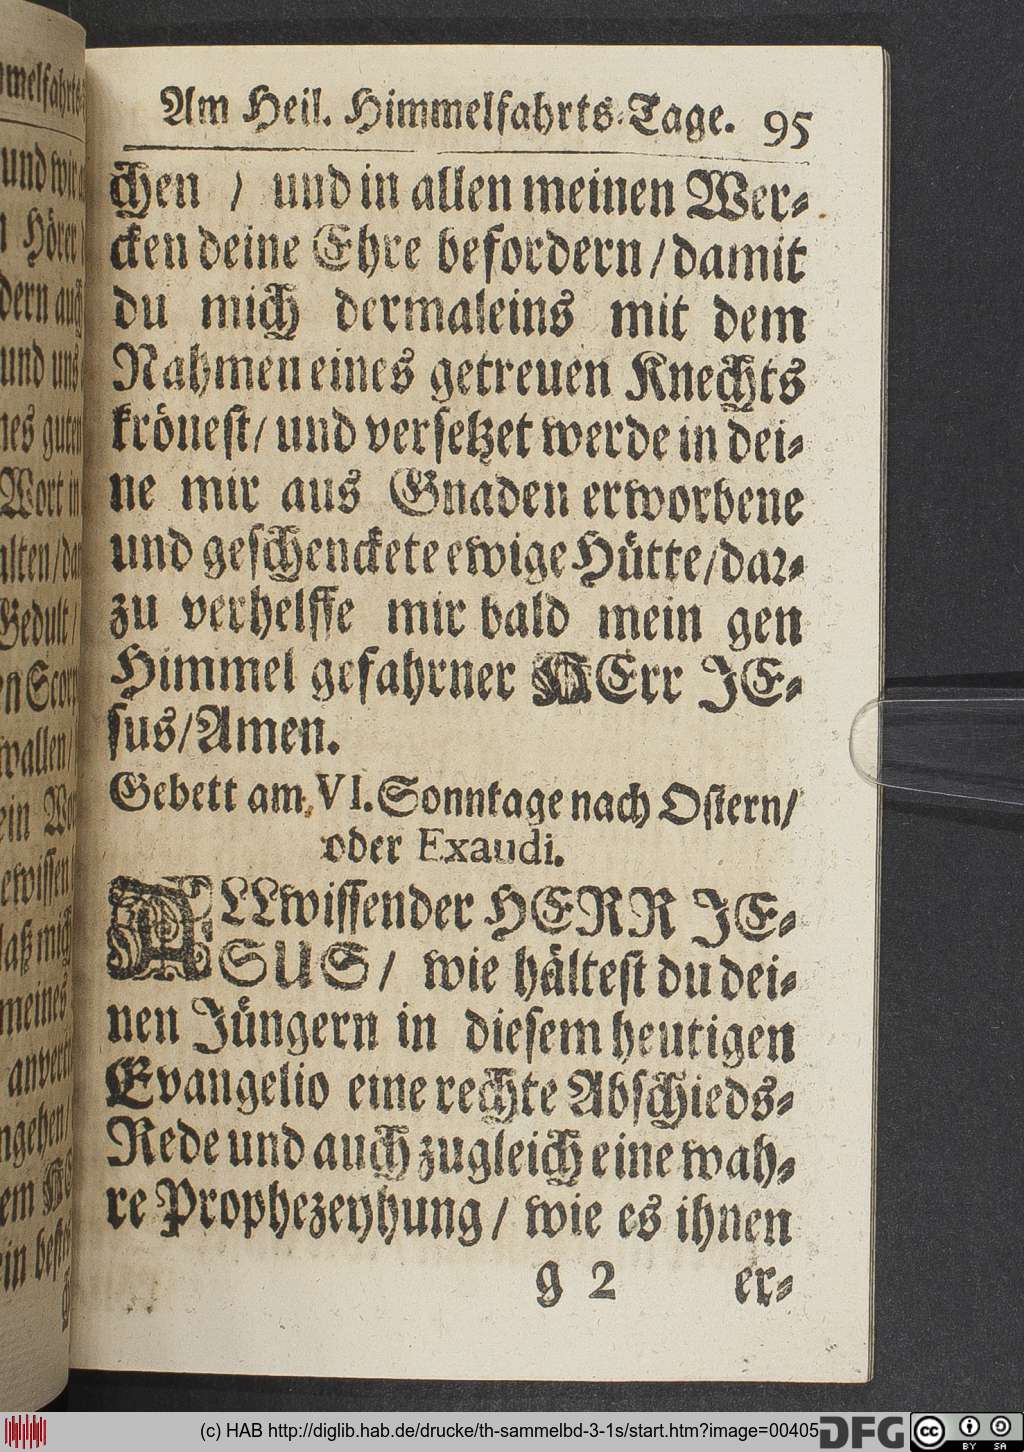 Am Heil. Himmelfahrts-Tage. 95
chen / und in allen meinen Wer-
cken deine Ehre befordern / damit
du mich dermaleins mit dem
Nahmen eines getreuen Knechts
krönest / und versetzet werde in dei-
ne mir aus Gnaden erworbene
und geschenckete ewige Hütte / dar-
zu verhelffe mir bald mein gen
Himmel gefahrner HErr JE-
sus / Amen.
Gebett am VI. Sonntage nach Ostern /
oder Exaudi.
ALLwissender HERR JE-
SUS / wie hältest du dei-
nen Jüngern in diesem heutigen
Evangelio eine rechte Abschieds-
Rede und auch zugleich eine wah-
re Prophezeyhung / wie es ihnen
g 2 er-
(c) HAB http://diglib.hab.de/drucke/th-sammelbd-3-1s/start.htm?image=00405
DFG
cc BY SA